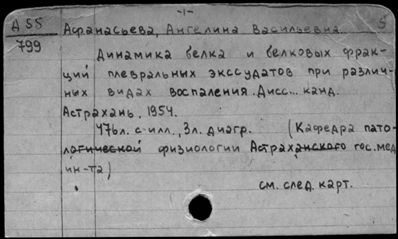 -1-
А 55 Афанасьева, Ангелина Васильевна. 5
799
Динамика белка и белковых фрак-
ций плевральных экссудатов при различ-
ных видах воспаления. Дисс... канд.
Астрахань, 1954.
476л. с илл., 3л. диагр. (Кафедра пато-
логической физиологии Астраханского гос. мед
ин-та)
см. след. карт.